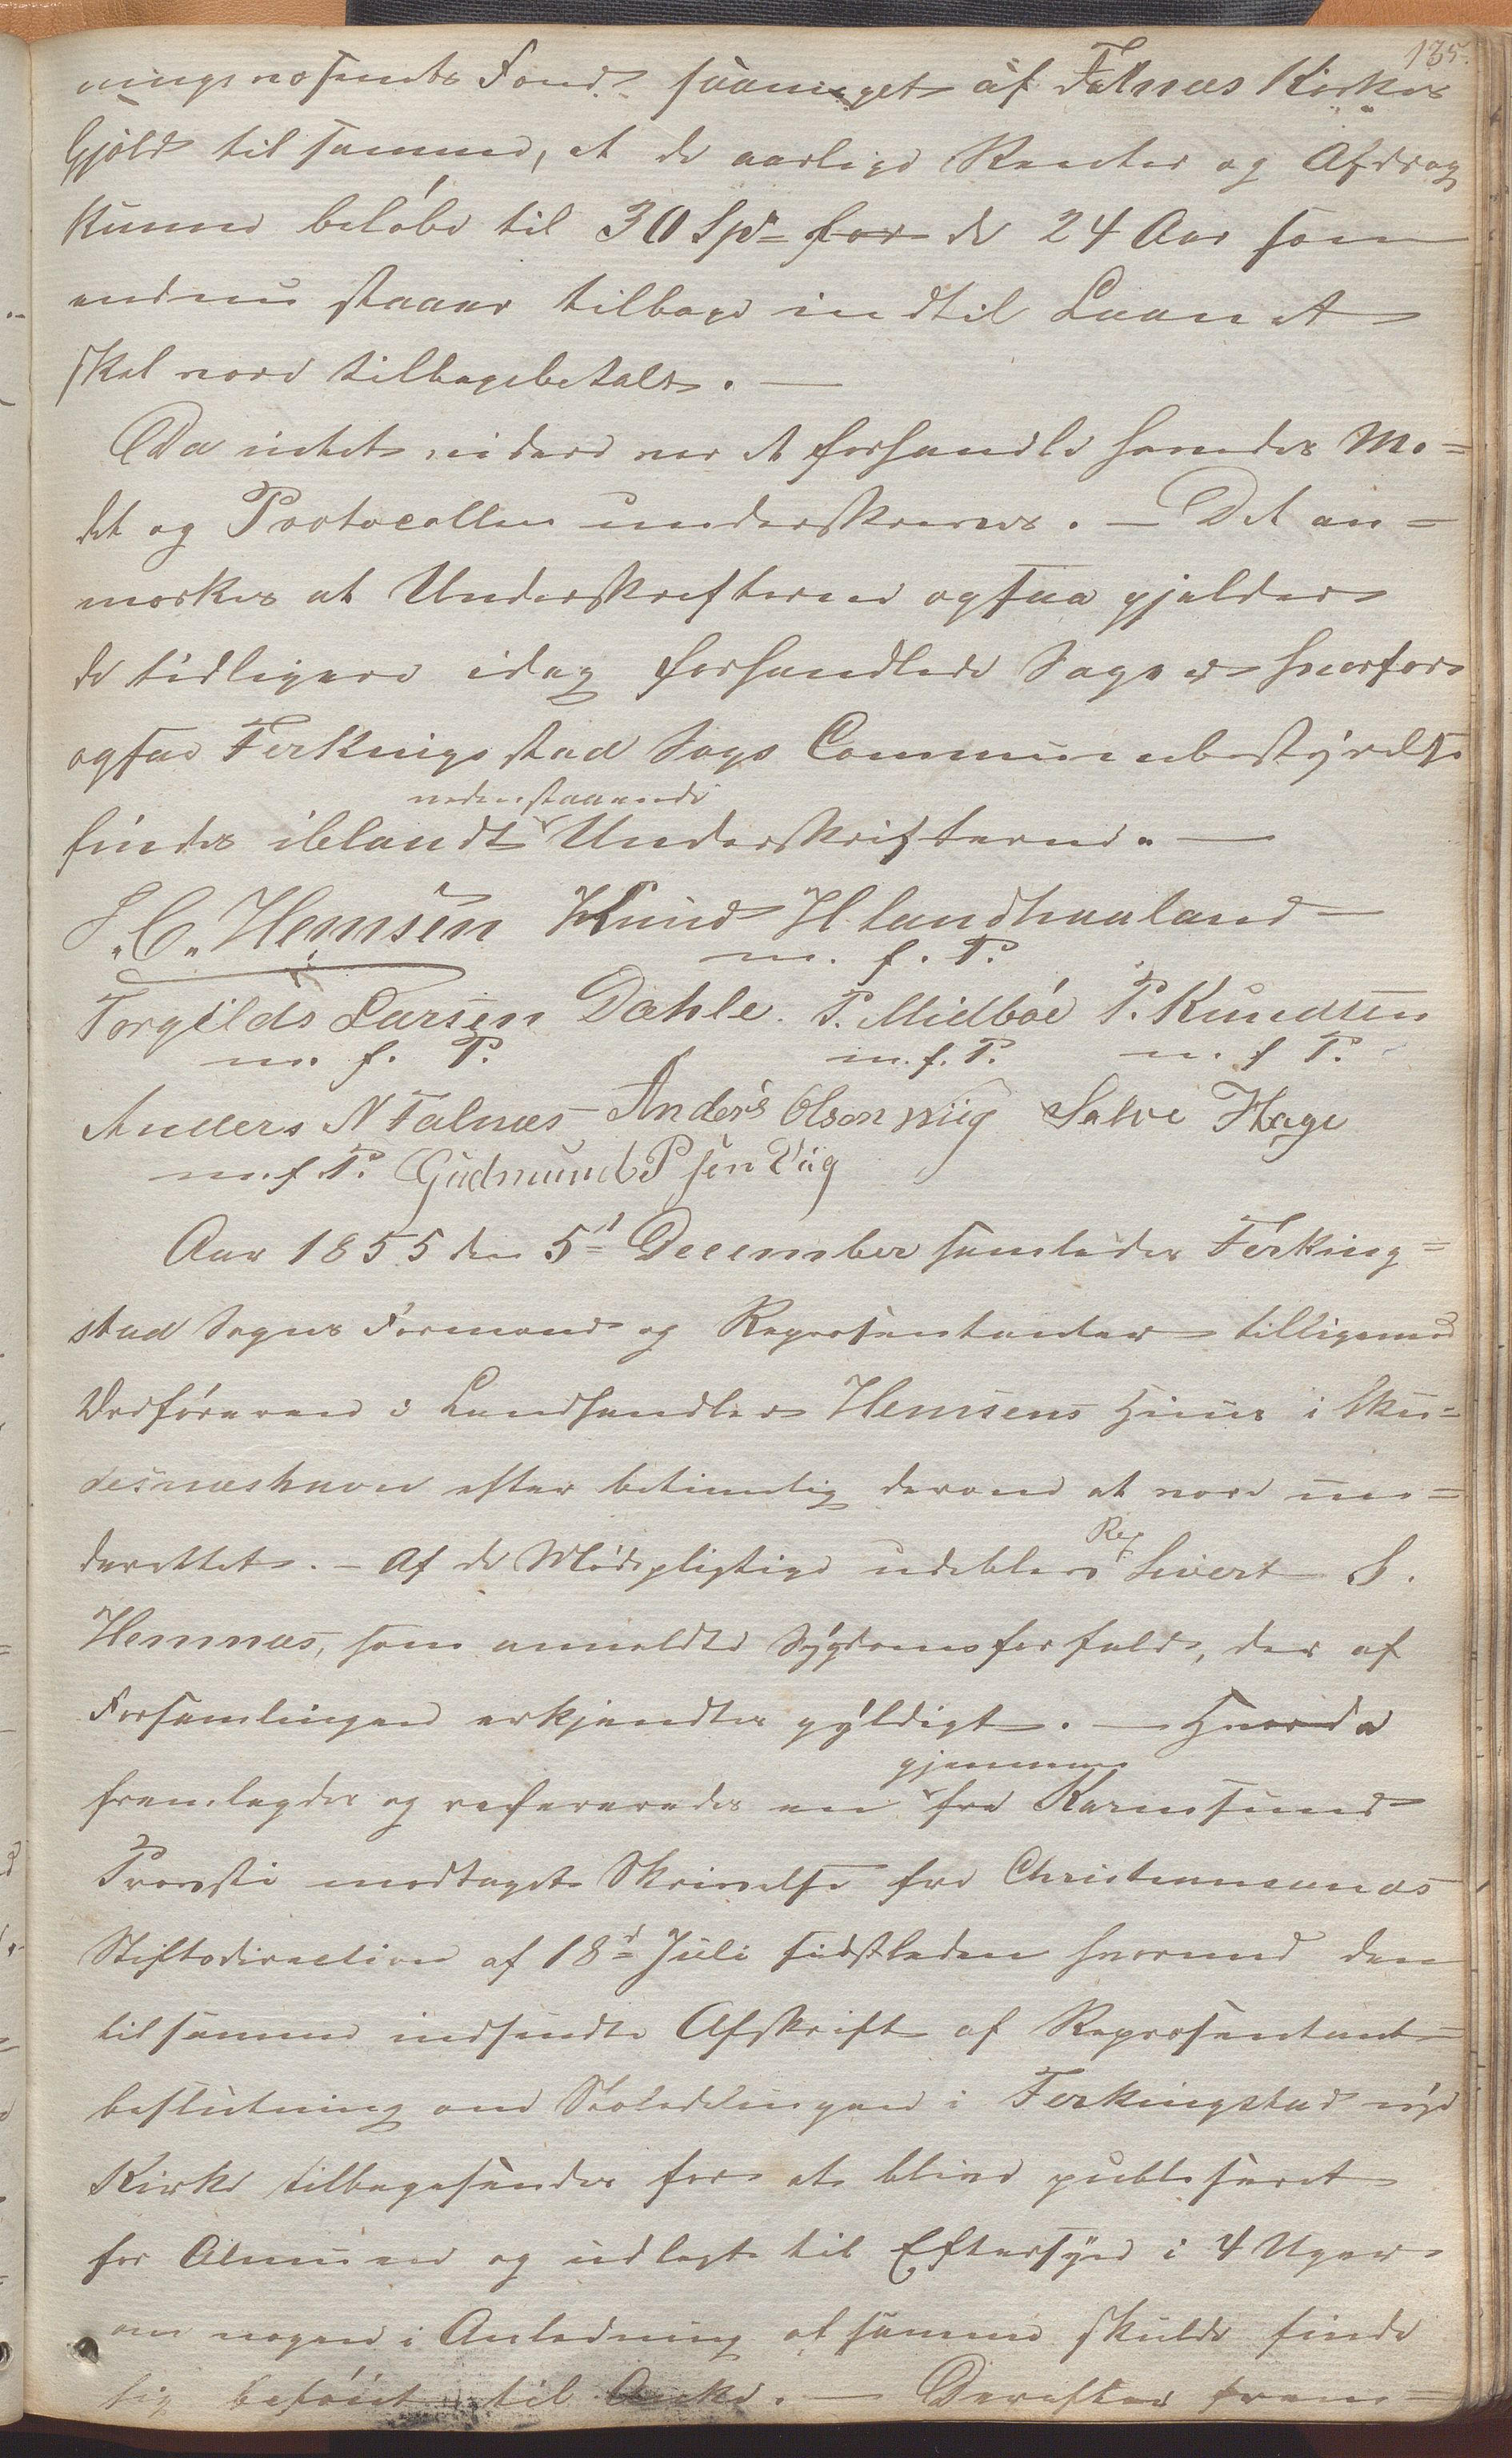 135.
ningsvæsenets Fond saameget af Falnæs Kirkes
Gjæld til samme, at de aarlige Renter og Afdrag
kunne beløbe til 30 Spd for de 24 Aar som
endnu staaer tilbage indtil Laanet
skal være tilbagebetalt. —
Da intet videre var at forhandle hævedes Mø-
det og Protocollen underskreves. — Det an-
mærkes at Underskrifterne ogsaa gjelder
de tidligere idag forhandlede Sager hvorfor
ogsaa Ferkingstad Sogs Communebestyrelse
nedenstaaende
findes iblandt Underskrifterne. —
S. C. Hemsen Knud H Landhaaland
m. f. P.
Torgilds Larsen Dahle. P. Midbøe P. Knudsen
m. f. P. m. f. P. m. f P.
Anders N Falnæs Anders Olson wiig Salve Hage
m. f. P. Gudmund P sen Viig
Aar 1855 den 5te December samledes Ferking-
stad Sogns Formænd og Repræsentanter tilligemed
Ordføreren i Landhandler Hemsens Huus i Sku-
desnæshavn efter betimelig derom at være un-
Rep
derettet. — Af de Mødepligtige udeblev Sivert S.
Hemnæs, som anmeldte Sygdomsforfald, der af
Forsamlingen erkjendtes gyldigt. — Hvorda
gjennem
fremlagdes og refereredes en fra Karmsund
Provsti modtaget Skrivelse fra Christiansands
Stiftsdirection af 18d Juli sidstleden hvormed den
til samme indsendte Afskrift af Repræsentant-
beslutning om Stoledelingen i Ferkingstad nye
Kirke tilbagesendes for at blive publiseret
for Almuen og udlagt til Eftersyn i 4 Uger
om nogen i Anledning af samme skulde finde
sig beføiet til Anke. — Derefter frem-